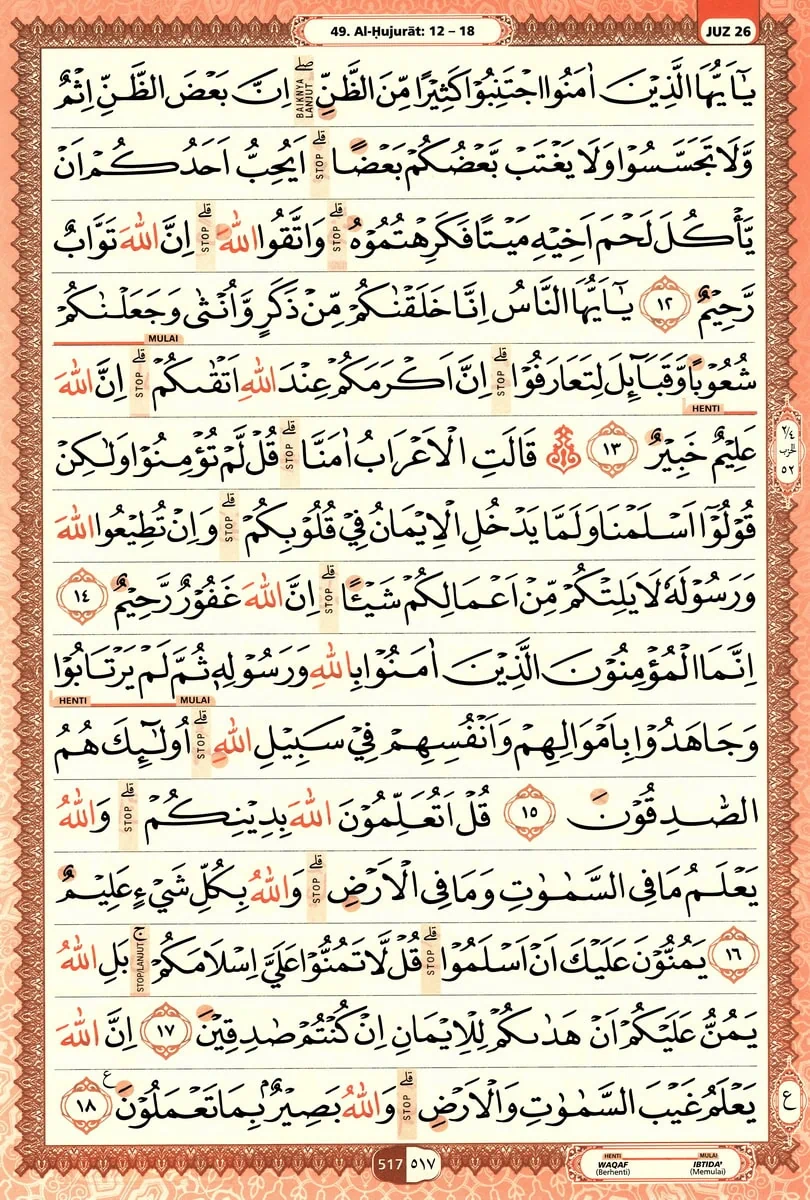 49. Al-Ḥujurāt: 12 – 18
JUZ 26
يٰٓاَيُّهَا الَّذِيْنَ اٰمَنُوا اجْتَنِبُوْا كَثِيْرًا مِّنَ الظَّنِّۖ BAIKNYA LANJUT اِنَّ بَعْضَ الظَّنِّ اِثْمٌ
وَّلَا تَجَسَّسُوْا وَلَا يَغْتَبْ بَّعْضُكُمْ بَعْضًاۗ STOP اَيُحِبُّ اَحَدُكُمْ اَنْ
يَّأْكُلَ لَحْمَ اَخِيْهِ مَيْتًا فَكَرِهْتُمُوْهُۗ STOP وَاتَّقُوا اللّٰهَۗ STOP اِنَّ اللّٰهَ تَوَّابٌ
رَّحِيْمٌ ١٢ يٰٓاَيُّهَا النَّاسُ اِنَّا خَلَقْنٰكُمْ مِّنْ ذَكَرٍ وَّاُنْثٰى وَجَعَلْنٰكُمْ
MULAI
شُعُوْبًا وَّقَبَاۤىِٕلَ لِتَعَارَفُوْاۗ STOP اِنَّ اَكْرَمَكُمْ عِنْدَ اللّٰهِ اَتْقٰىكُمْۗ STOP اِنَّ اللّٰهَ
HENTI
عَلِيْمٌ خَبِيْرٌ ١٣ قَالَتِ الْاَعْرَابُ اٰمَنَّاۗ STOP قُلْ لَّمْ تُؤْمِنُوْا وَلٰكِنْ
٢/٤ الحزب ٥٢
قُوْلُوْٓا اَسْلَمْنَا وَلَمَّا يَدْخُلِ الْاِيْمَانُ فِيْ قُلُوْبِكُمْۗ STOP وَاِنْ تُطِيْعُوا اللّٰهَ
وَرَسُوْلَهٗ لَا يَلِتْكُمْ مِّنْ اَعْمَالِكُمْ شَيْـًٔاۗ STOP اِنَّ اللّٰهَ غَفُوْرٌ رَّحِيْمٌ ١٤
اِنَّمَا الْمُؤْمِنُوْنَ الَّذِيْنَ اٰمَنُوْا بِاللّٰهِ وَرَسُوْلِهٖ ثُمَّ لَمْ يَرْتَابُوْا
MULAI HENTI
وَجَاهَدُوْا بِاَمْوَالِهِمْ وَاَنْفُسِهِمْ فِيْ سَبِيْلِ اللّٰهِۗ STOP اُولٰۤىِٕكَ هُمُ
الصّٰدِقُوْنَ ١٥ قُلْ اَتُعَلِّمُوْنَ اللّٰهَ بِدِيْنِكُمْۗ STOP وَاللّٰهُ
يَعْلَمُ مَا فِى السَّمٰوٰتِ وَمَا فِى الْاَرْضِۗ STOP وَاللّٰهُ بِكُلِّ شَيْءٍ عَلِيْمٌ
١٦ يَمُنُّوْنَ عَلَيْكَ اَنْ اَسْلَمُوْاۗ STOP قُلْ لَّا تَمُنُّوْا عَلَيَّ اِسْلَامَكُمْۚ STOP/LANJUT بَلِ اللّٰهُ
يَمُنُّ عَلَيْكُمْ اَنْ هَدٰىكُمْ لِلْاِيْمَانِ اِنْ كُنْتُمْ صٰدِقِيْنَ ١٧ اِنَّ اللّٰهَ
يَعْلَمُ غَيْبَ السَّمٰوٰتِ وَالْاَرْضِۗ STOP وَاللّٰهُ بَصِيْرٌۢ بِمَا تَعْمَلُوْنَ ࣖ ١٨
ع
517 ٥١٧
HENTI MULAI
WAQAF IBTIDA'
(Berhenti) (Memulai)